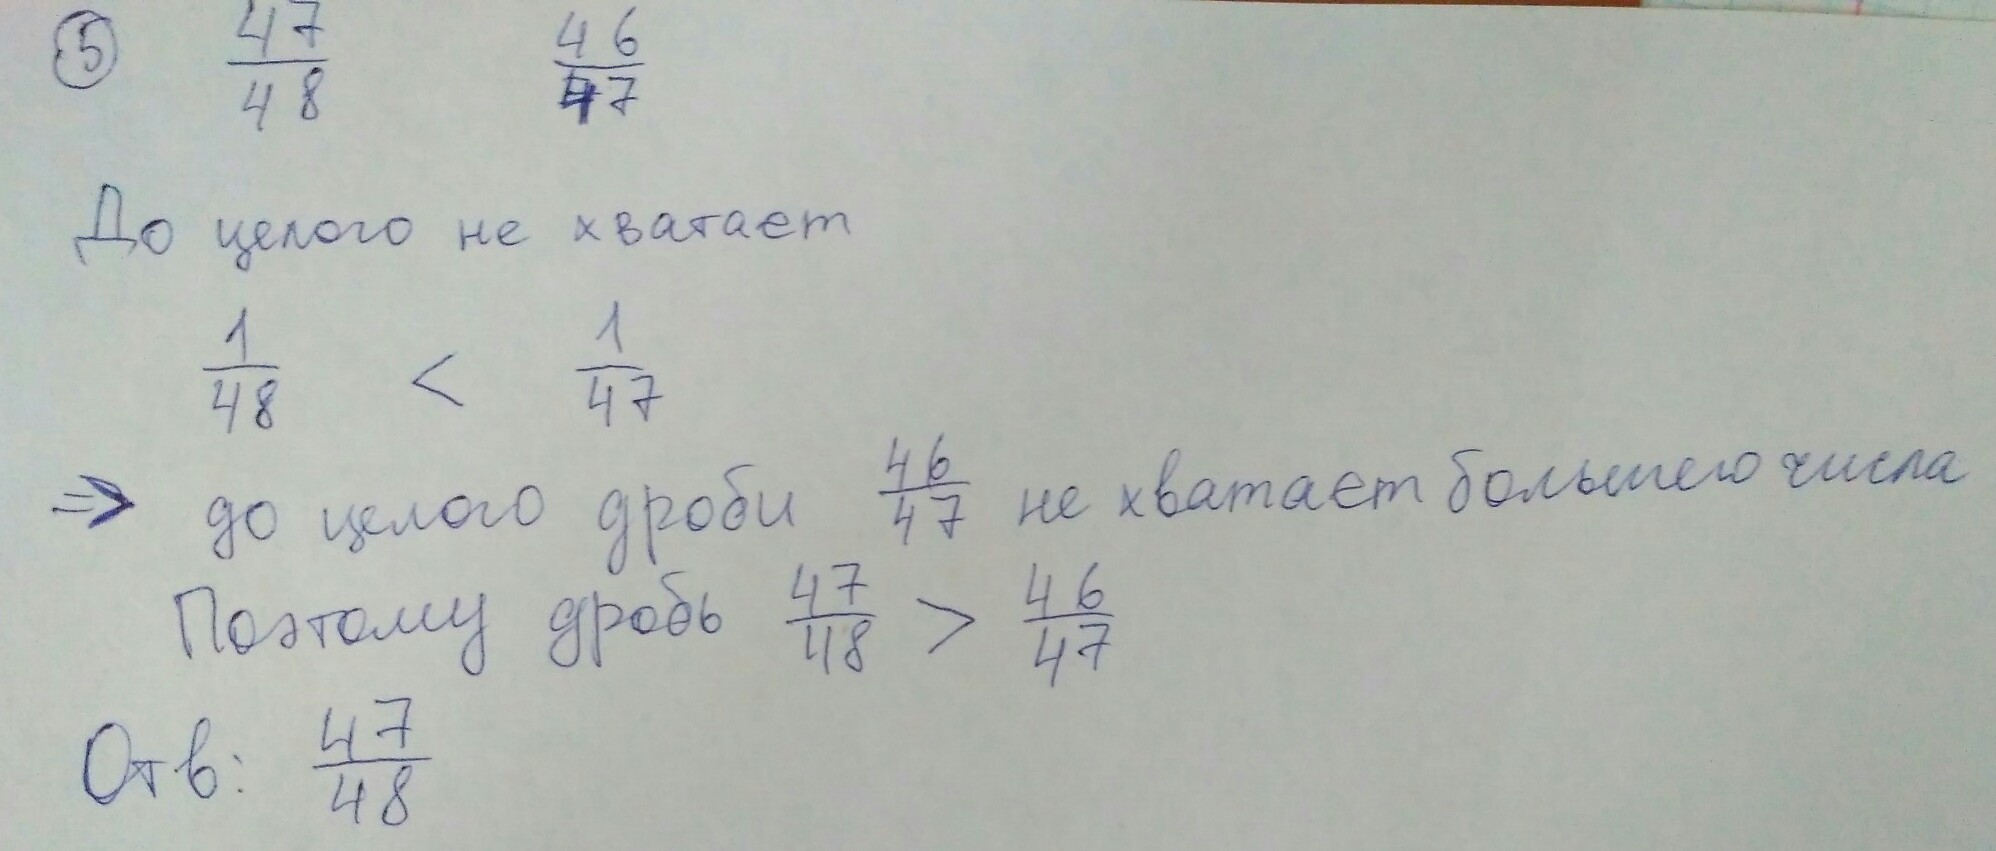 5 47/48 46/47
До целого не хватает
1/48 < 1/47
=> до целого дроби 46/47 не хватает большего числа
Поэтому дробь 47/48 > 46/47
Отв: 47/48